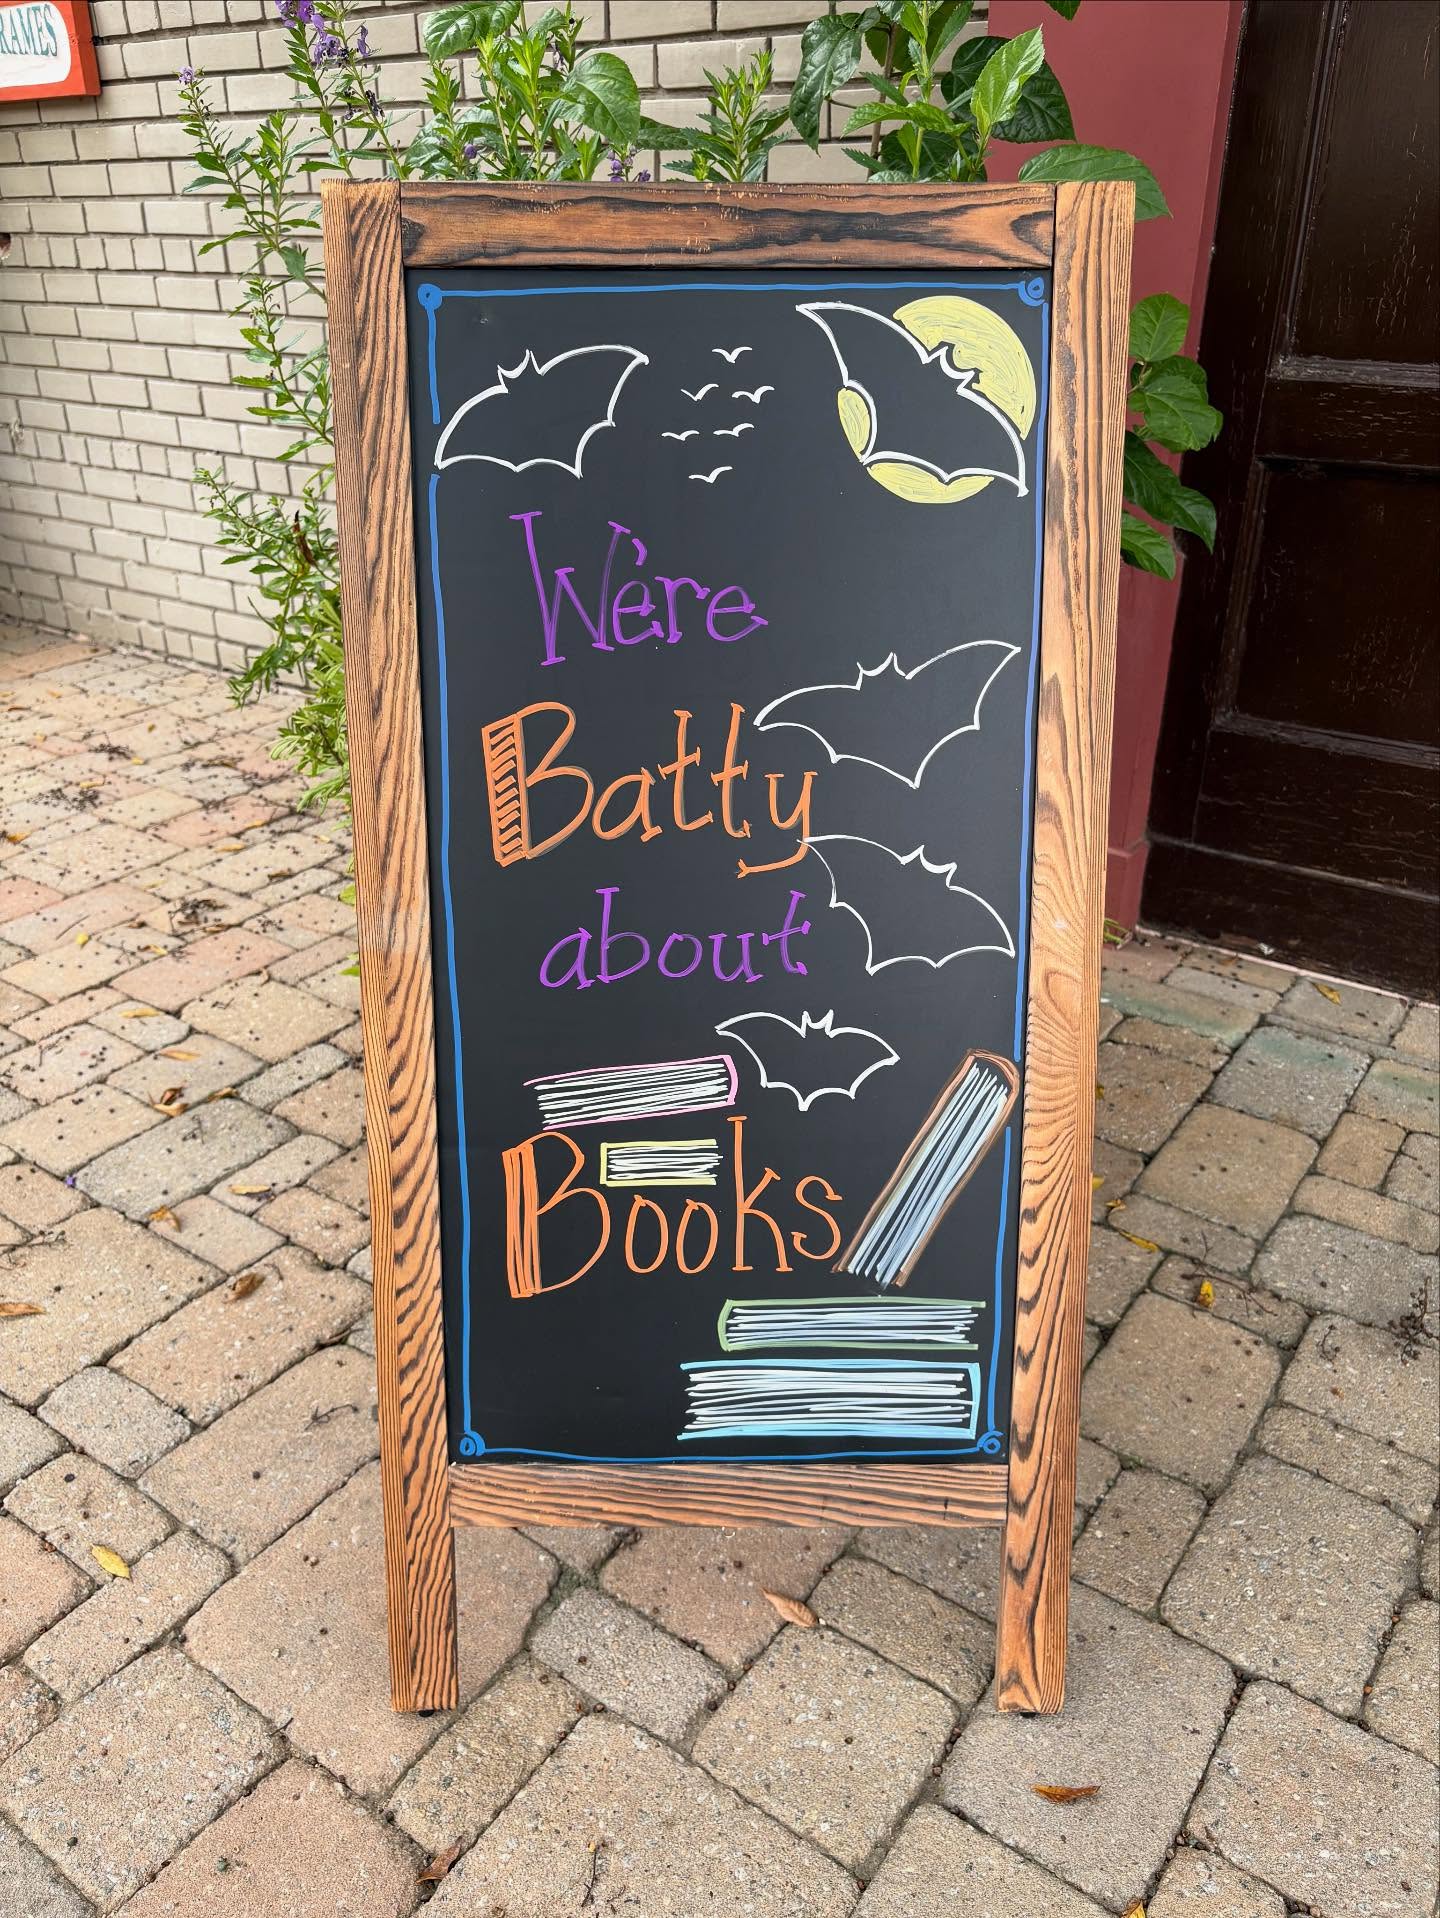 RAMES
We're
Batty
about
Books